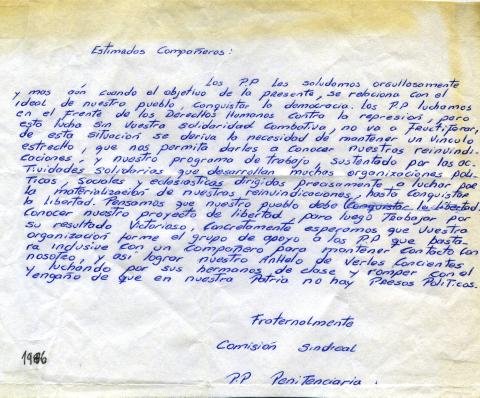 Estimados Compañeros:
Los P.P Les saludamos orgullosamente
y mas aún cuando el objetivo de la presente, se relaciona con el
ideal de nuestro pueblo, conquistar la democracia. Los P.P luchamos
en el Frente de los Derechos Humanos contra la represión, pero
esta lucha sin vuestra solidaridad combativa, no va a Fructiferar,
de esta situación se deriva la necesidad de mantener un vínculo
estrecho, que nos permita darles a conocer nuestras reinvindi_
caciones, y nuestro programa de trabajo, sustentado por las ac_
tividades solidarias que desarrollan muchas organizaciones poli_
Ticas, sociales y eclesiasticas dirigidas precisamente a luchar por
la materialización de nuestras reinvindicaciones, hasta conquistar
la libertad. Pensamos que nuestro pueblo debe Conquistar la libertad.
Conocer nuestro proyecto de libertad, para luego Trabajar por
su resultado Victorioso, Concretamente esperamos que Vuestra
organización forme el grupo de apoyo a los P.P, que basta_
rá inclusive con un Compañero para mantener Contacto con
nosotros, y así lograr nuestro anhelo de verlos concientes
y luchando por sus hermanos de clase y romper con el
engaño de que en nuestra Patria no hay Presos Políticos.
Fraternalmente
Comisión Sindical
P.P Penitenciaria.
1986